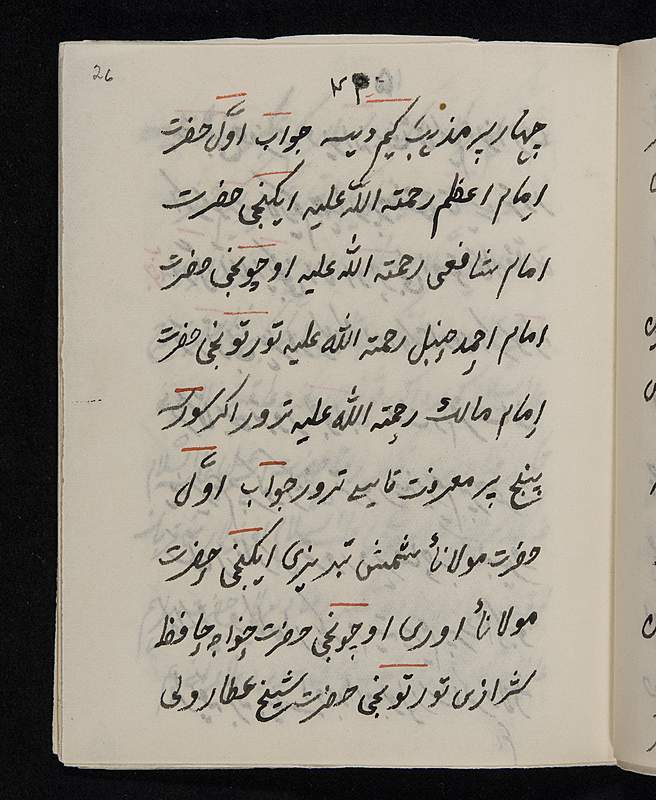 26
چهار پیر مذهب کیم دیسه جواب اوّل حضرت
امام اعظم رحمته الله علیه ایکنجی حضرت
امام شافعی رحمته الله علیه اوچونجی حضرت
امام احمد حنبل رحمته الله علیه تورتونجی حضرت
امام مالک رحمته الله علیه ترور اکر سورسه
پنج پیر معرفت قایسی ترور جواب اوّل
حضرت مولانأ شمش تبریزی ایکنجی حضرت
مولانأ اوری اوچونجی حضرت خواجه حافظ
شرازی تورتونجی حضرت شیخ عطار ولی